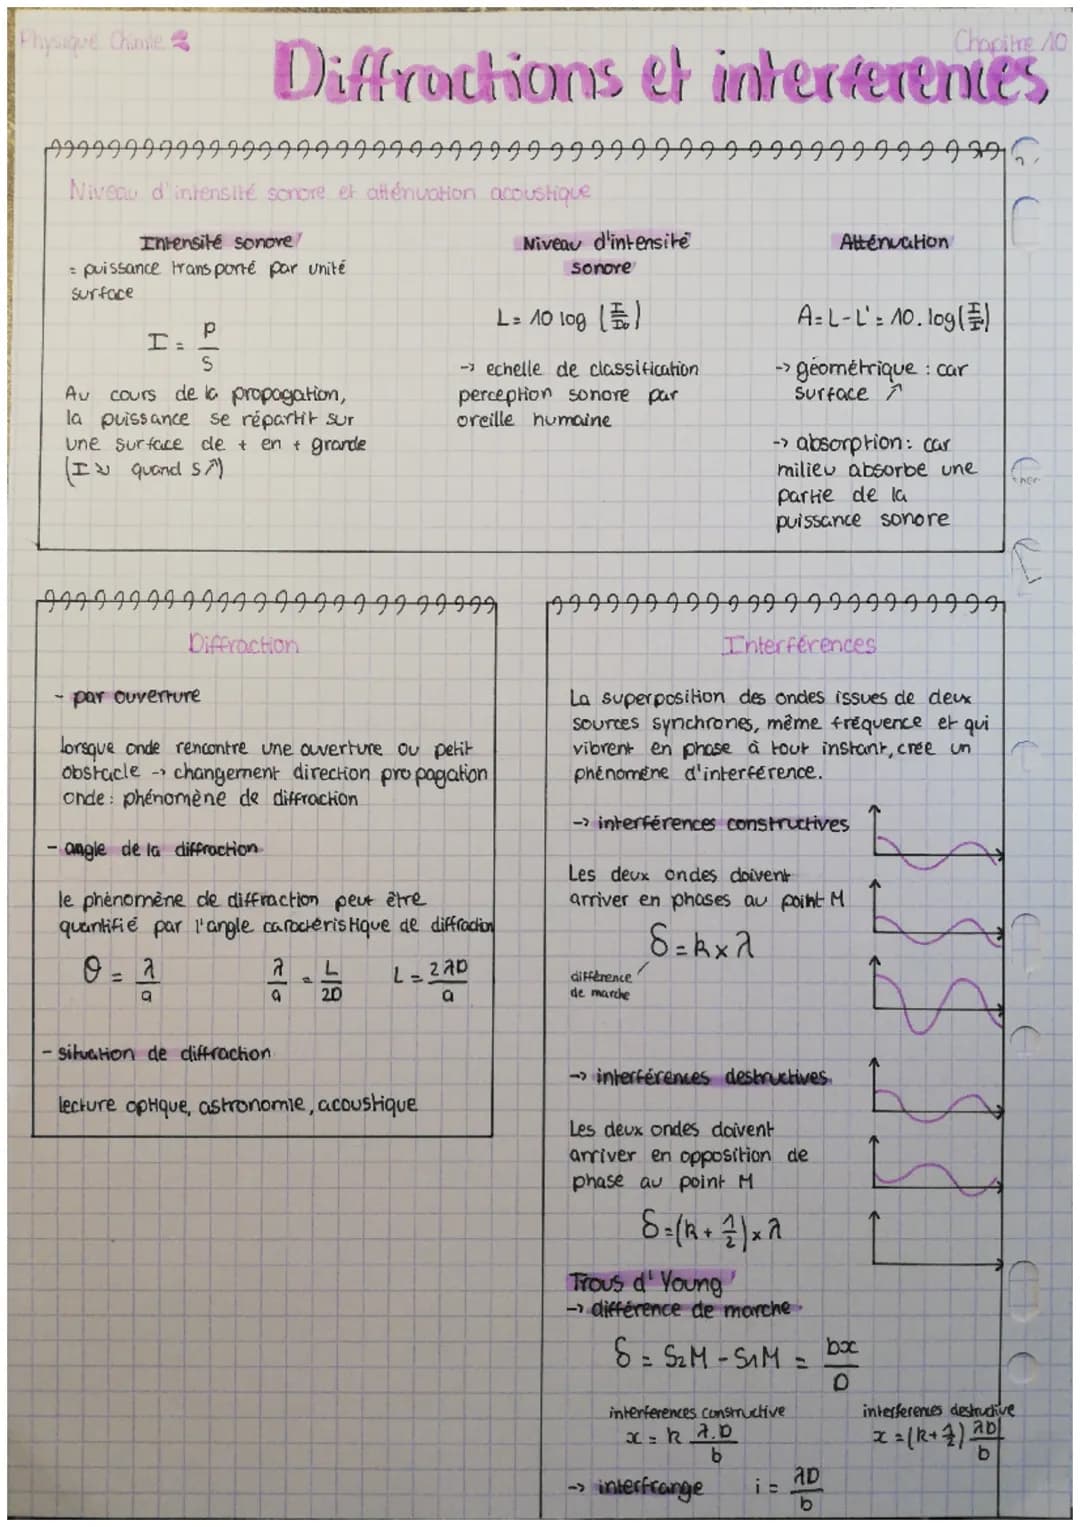 Physique Chimie
Chapitre 10
Diffractions et interferences
Niveau d'intensité sonore et atténuation acoustique
Intensité sonore
= puissance transporté par unité
surface
I = P/S
Au cours de la propagation,
la puissance se répartit sur
une surface de + en + grande
(I ↘ quand S↗)
Niveau d'intensité
sonore
L = 10 log (I/I₀)
-> echelle de classification
perception sonore par
oreille humaine
Atténuation
A = L - L' = 10. log(I/I')
-> géométrique : car
surface ↗
-> absorption: car
milieu absorbe une
partie de la
puissance sonore
Diffraction
- par ouverture
lorsque onde rencontre une ouverture ou petit
obstacle -> changement direction propagation
onde: phénomène de diffraction
- angle de la diffraction
le phénomène de diffraction peut être
quantifié par l'angle caractéristique de diffraction
θ = λ/a λ/a = L/2D L = 2λD/a
- situation de diffraction
lecture optique, astronomie, acoustique
Interférences
La superposition des ondes issues de deux
sources synchrones, même fréquence et qui
vibrent en phase à tout instant, crée un
phénomène d'interférence.
-> interférences constructives
Les deux ondes doivent
arriver en phases au point M
δ = k x λ
différence
de marche
-> interférences destructives
Les deux ondes doivent
arriver en opposition de
phase au point M
δ = (k + 1/2) x λ
Trous d'Young
-> différence de marche
δ = S2M - S1M = bx/D
interferences constructive
x = k λ.D/b
interferences destructive
x = (k + 1/2) λD/b
-> interfrange i = λD/b